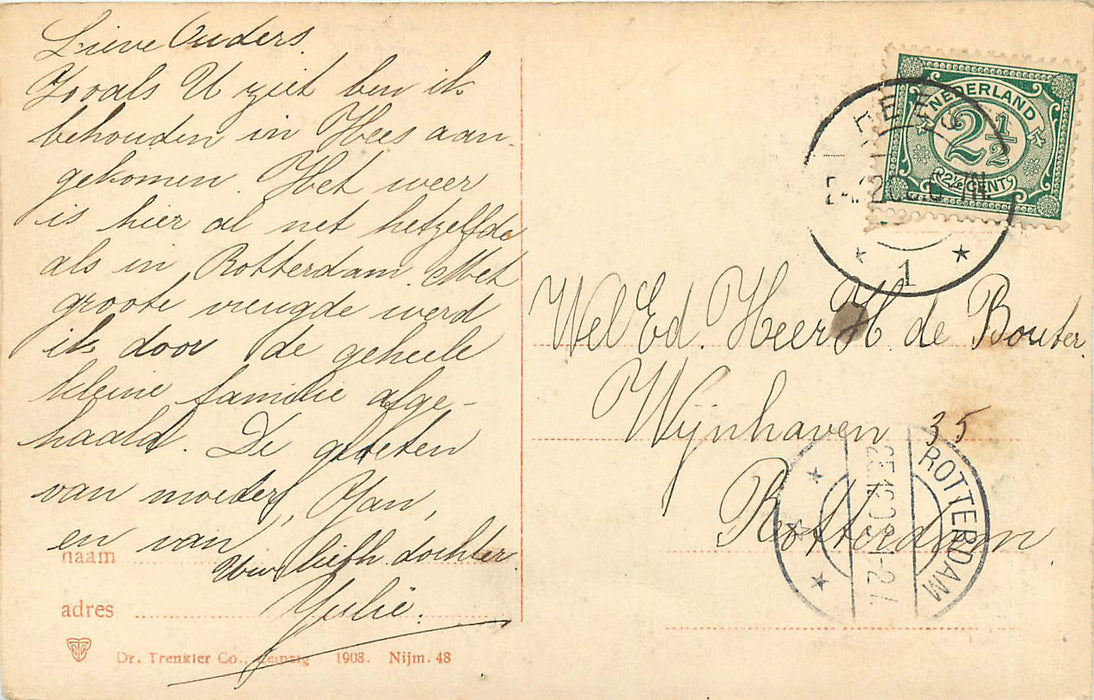 Lieve Ouders.
Zooals U ziet ben ik
behouden in Hees aan
gekomen. Het weer
is hier al net hetzelfde
als in Rotterdam. Met
groote vreugde werd
ik door de geheele
kleine familie afge-
haald. De groeten
van moeder, Jan,
en van
Uw liefh. dochter
Julie.
naam
adres
Dr. Trenkler Co., Leipzig 1908. Nijm. 48
NEDERLAND
2½
2½ CENT
1
Wel Ed. Heer H. de Bouter.
Wijnhaven 35
Rotterdam
ROTTERDAM